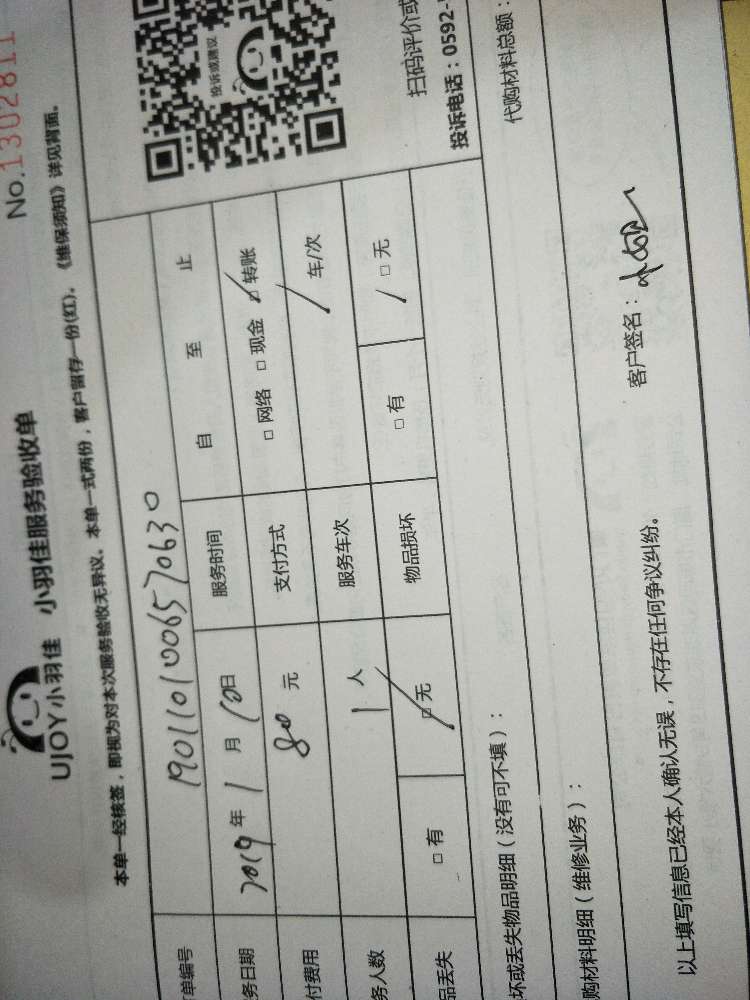 UJOY小羽佳 小羽佳服务验收单
No.1302811
本单一经核签，即视为对本次服务验收无异议。本单一式两份，客户留存一份(红)。《维保须知》详见背面。
单编号 1901101006570630
务日期 2019年1月10日 服务时间 自 至 止
付费用 80元 支付方式 □网络 □现金 □转账
务人数 1人 服务车次 车/次
品丢失 □有 □无 物品损坏 □有 □无
投诉或建议
扫码评价或
投诉电话：0592-
坏或丢失物品明细（没有可不填）：
代购材料总额：
购材料明细（维修业务）：
以上填写信息已经本人确认无误，不存在任何争议纠纷。 客户签名：